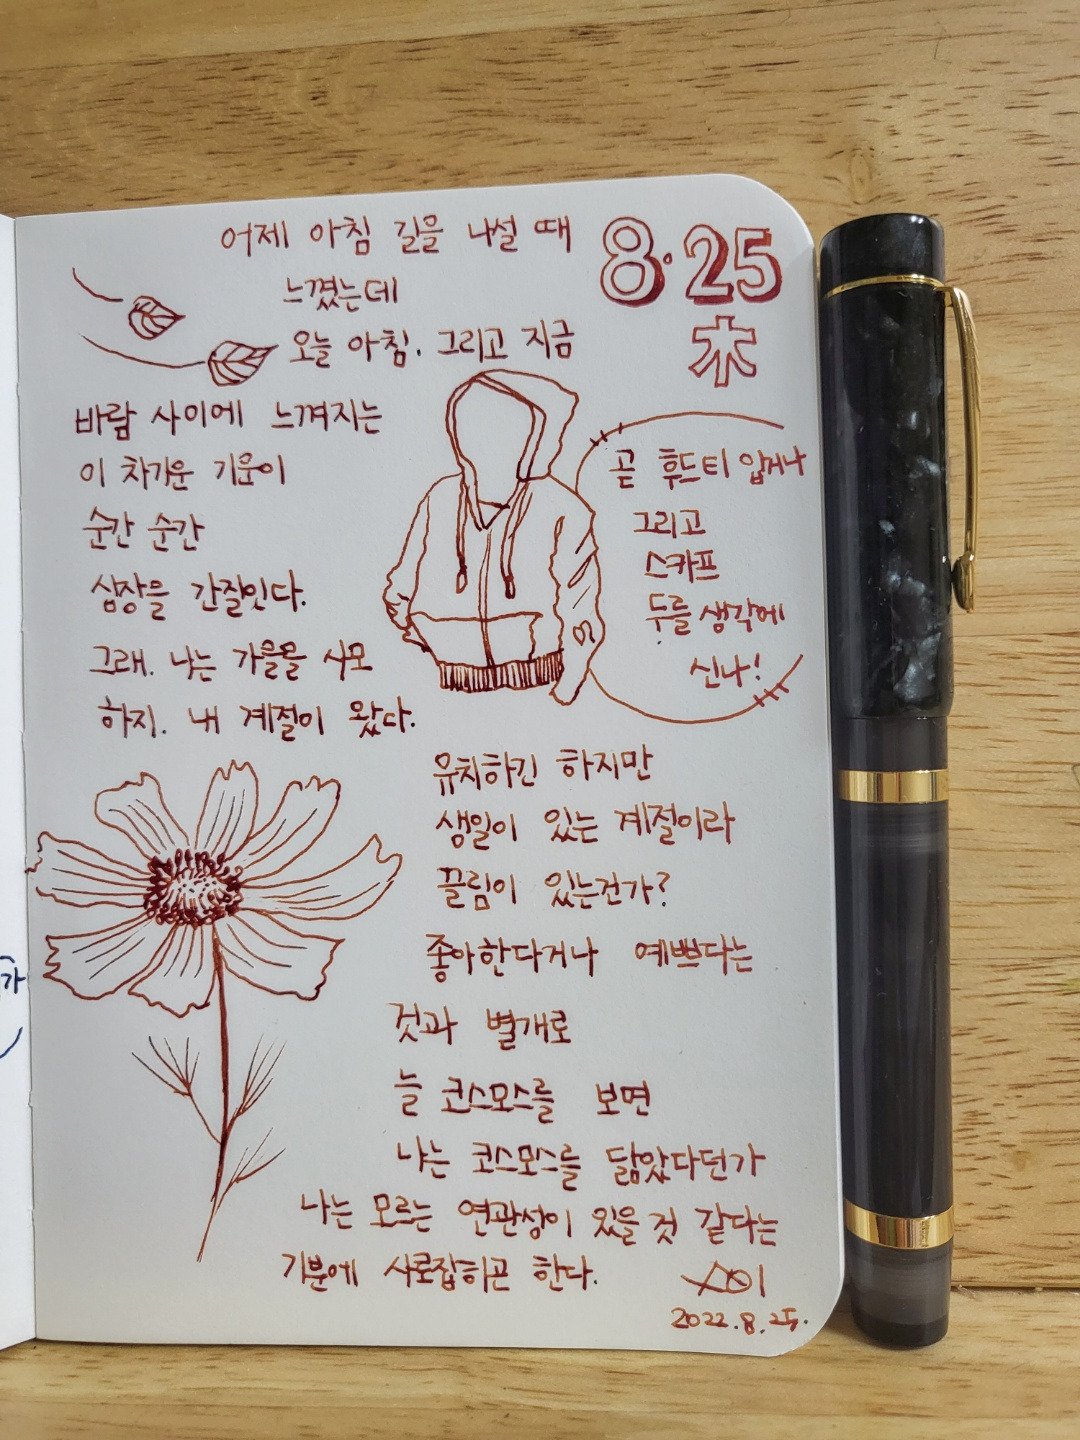 어제 아침 길을 나설 때
느꼈는데
오늘 아침. 그리고 지금
8·25
木
바람 사이에 느껴지는
이 차가운 기운이
순간 순간
심장을 간질인다.
그래. 나는 가을을 사모
하지. 내 계절이 왔다.
곧 후드티 입거나
그리고
스카프
두를 생각에
신나!
유치하긴 하지만
생일이 있는 계절이라
끌림이 있는건가?
좋아한다거나 예쁘다는
것과 별개로
늘 코스모스를 보면
나는 코스모스를 닮았다던가
나는 모르는 연관성이 있을 것 같다는
기분에 사로잡히곤 한다.
2022.8.25.
가